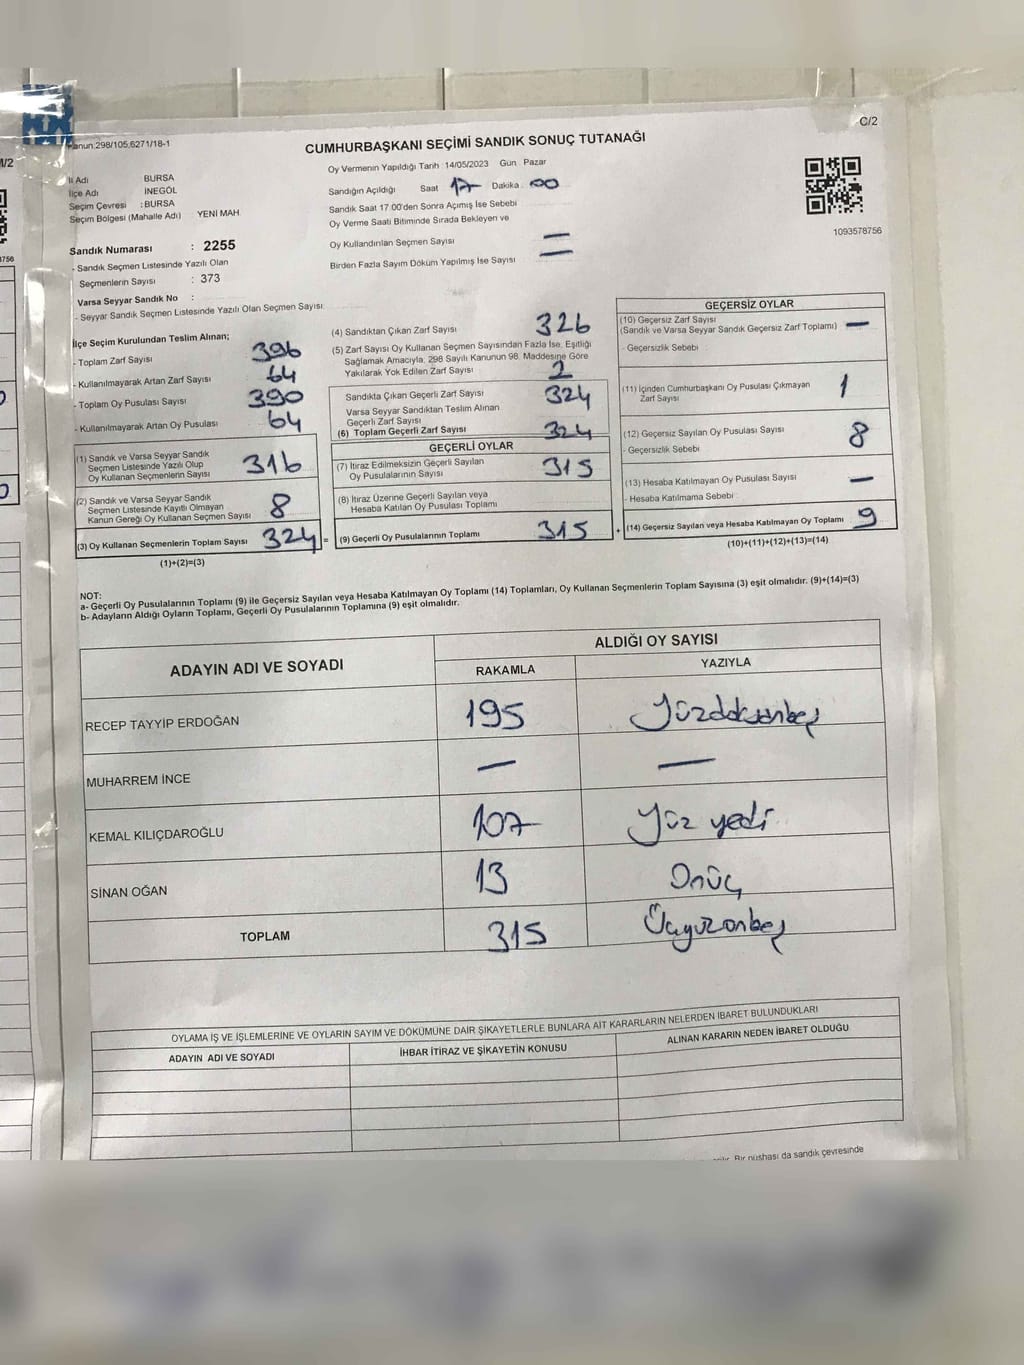 C/2
Kanun.298/105,6271/18-1
CUMHURBAŞKANI SEÇİMİ SANDIK SONUÇ TUTANAĞI
İl Adı BURSA
İlçe Adı İNEGÖL
Seçim Çevresi : BURSA
Seçim Bölgesi (Mahalle Adı) YENİ MAH.
Sandık Numarası : 2255
- Sandık Seçmen Listesinde Yazılı Olan
Seçmenlerin Sayısı : 373
Varsa Seyyar Sandık No :
- Seyyar Sandık Seçmen Listesinde Yazılı Olan Seçmen Sayısı:
Oy Vermenin Yapıldığı Tarih : 14/05/2023 Gün : Pazar
Sandığın Açıldığı Saat 17 Dakika : 00
Sandık Saat 17:00'den Sonra Açımış İse Sebebi
Oy Verme Saati Bitiminde Sırada Bekleyen ve
Oy Kullandırılan Seçmen Sayısı —
Birden Fazla Sayım Döküm Yapılmış İse Sayısı —
1093578756
İlçe Seçim Kurulundan Teslim Alınan;
- Toplam Zarf Sayısı 396
- Kullanılmayarak Artan Zarf Sayısı 64
- Toplam Oy Pusulası Sayısı 390
- Kullanılmayarak Artan Oy Pusulası 64
(1) Sandık ve Varsa Seyyar Sandık
Seçmen Listesinde Yazılı Olup
Oy Kullanan Seçmenlerin Sayısı 316
(2) Sandık ve Varsa Seyyar Sandık
Seçmen Listesinde Kayıtlı Olmayan
Kanun Gereği Oy Kullanan Seçmen Sayısı 8
(3) Oy Kullanan Seçmenlerin Toplam Sayısı 324 =
(1)+(2)=(3)
(4) Sandıktan Çıkan Zarf Sayısı 326
(5) Zarf Sayısı Oy Kullanan Seçmen Sayısından Fazla İse, Eşitliği
Sağlamak Amacıyla, 298 Sayılı Kanunun 98. Maddesine Göre
Yakılarak Yok Edilen Zarf Sayısı 2
Sandıkta Çıkan Geçerli Zarf Sayısı 324
Varsa Seyyar Sandıktan Teslim Alınan
Geçerli Zarf Sayısı
(6) Toplam Geçerli Zarf Sayısı 324
GEÇERLİ OYLAR
(7) İtiraz Edilmeksizin Geçerli Sayılan
Oy Pusulalarının Sayısı 315
(8) İtiraz Üzerine Geçerli Sayılan veya
Hesaba Katılan Oy Pusulası Toplamı
(9) Geçerli Oy Pusulalarının Toplamı 315 +
GEÇERSİZ OYLAR
(10) Geçersiz Zarf Sayısı —
(Sandık ve Varsa Seyyar Sandık Geçersiz Zarf Toplamı)
- Geçersizlik Sebebi :
(11) İçinden Cumhurbaşkanı Oy Pusulası Çıkmayan
Zarf Sayısı 1
(12) Geçersiz Sayılan Oy Pusulası Sayısı 8
- Geçersizlik Sebebi
(13) Hesaba Katılmayan Oy Pusulası Sayısı —
- Hesaba Katılmama Sebebi
(14) Geçersiz Sayılan veya Hesaba Katılmayan Oy Toplamı 9
(10)+(11)+(12)+(13)=(14)
NOT:
a- Geçerli Oy Pusulalarının Toplamı (9) ile Geçersiz Sayılan veya Hesaba Katılmayan Oy Toplamı (14) Toplamları, Oy Kullanan Seçmenlerin Toplam Sayısına (3) eşit olmalıdır. (9)+(14)=(3)
b- Adayların Aldığı Oyların Toplamı, Geçerli Oy Pusulalarının Toplamına (9) eşit olmalıdır.
ADAYIN ADI VE SOYADI
ALDIĞI OY SAYISI
RAKAMLA YAZIYLA
RECEP TAYYİP ERDOĞAN 195 Yüzdoksanbeş
MUHARREM İNCE — —
KEMAL KILIÇDAROĞLU 107 Yüz yedi
SİNAN OĞAN 13 Onüç
TOPLAM 315 Üçyüzonbeş
OYLAMA İŞ VE İŞLEMLERİNE VE OYLARIN SAYIM VE DÖKÜMÜNE DAİR ŞİKAYETLERLE BUNLARA AİT KARARLARIN NELERDEN İBARET BULUNDUKLARI
ADAYIN ADI VE SOYADI İHBAR İTİRAZ VE ŞİKAYETİN KONUSU ALINAN KARARIN NEDEN İBARET OLDUĞU
Bir nüshası da sandık çevresinde